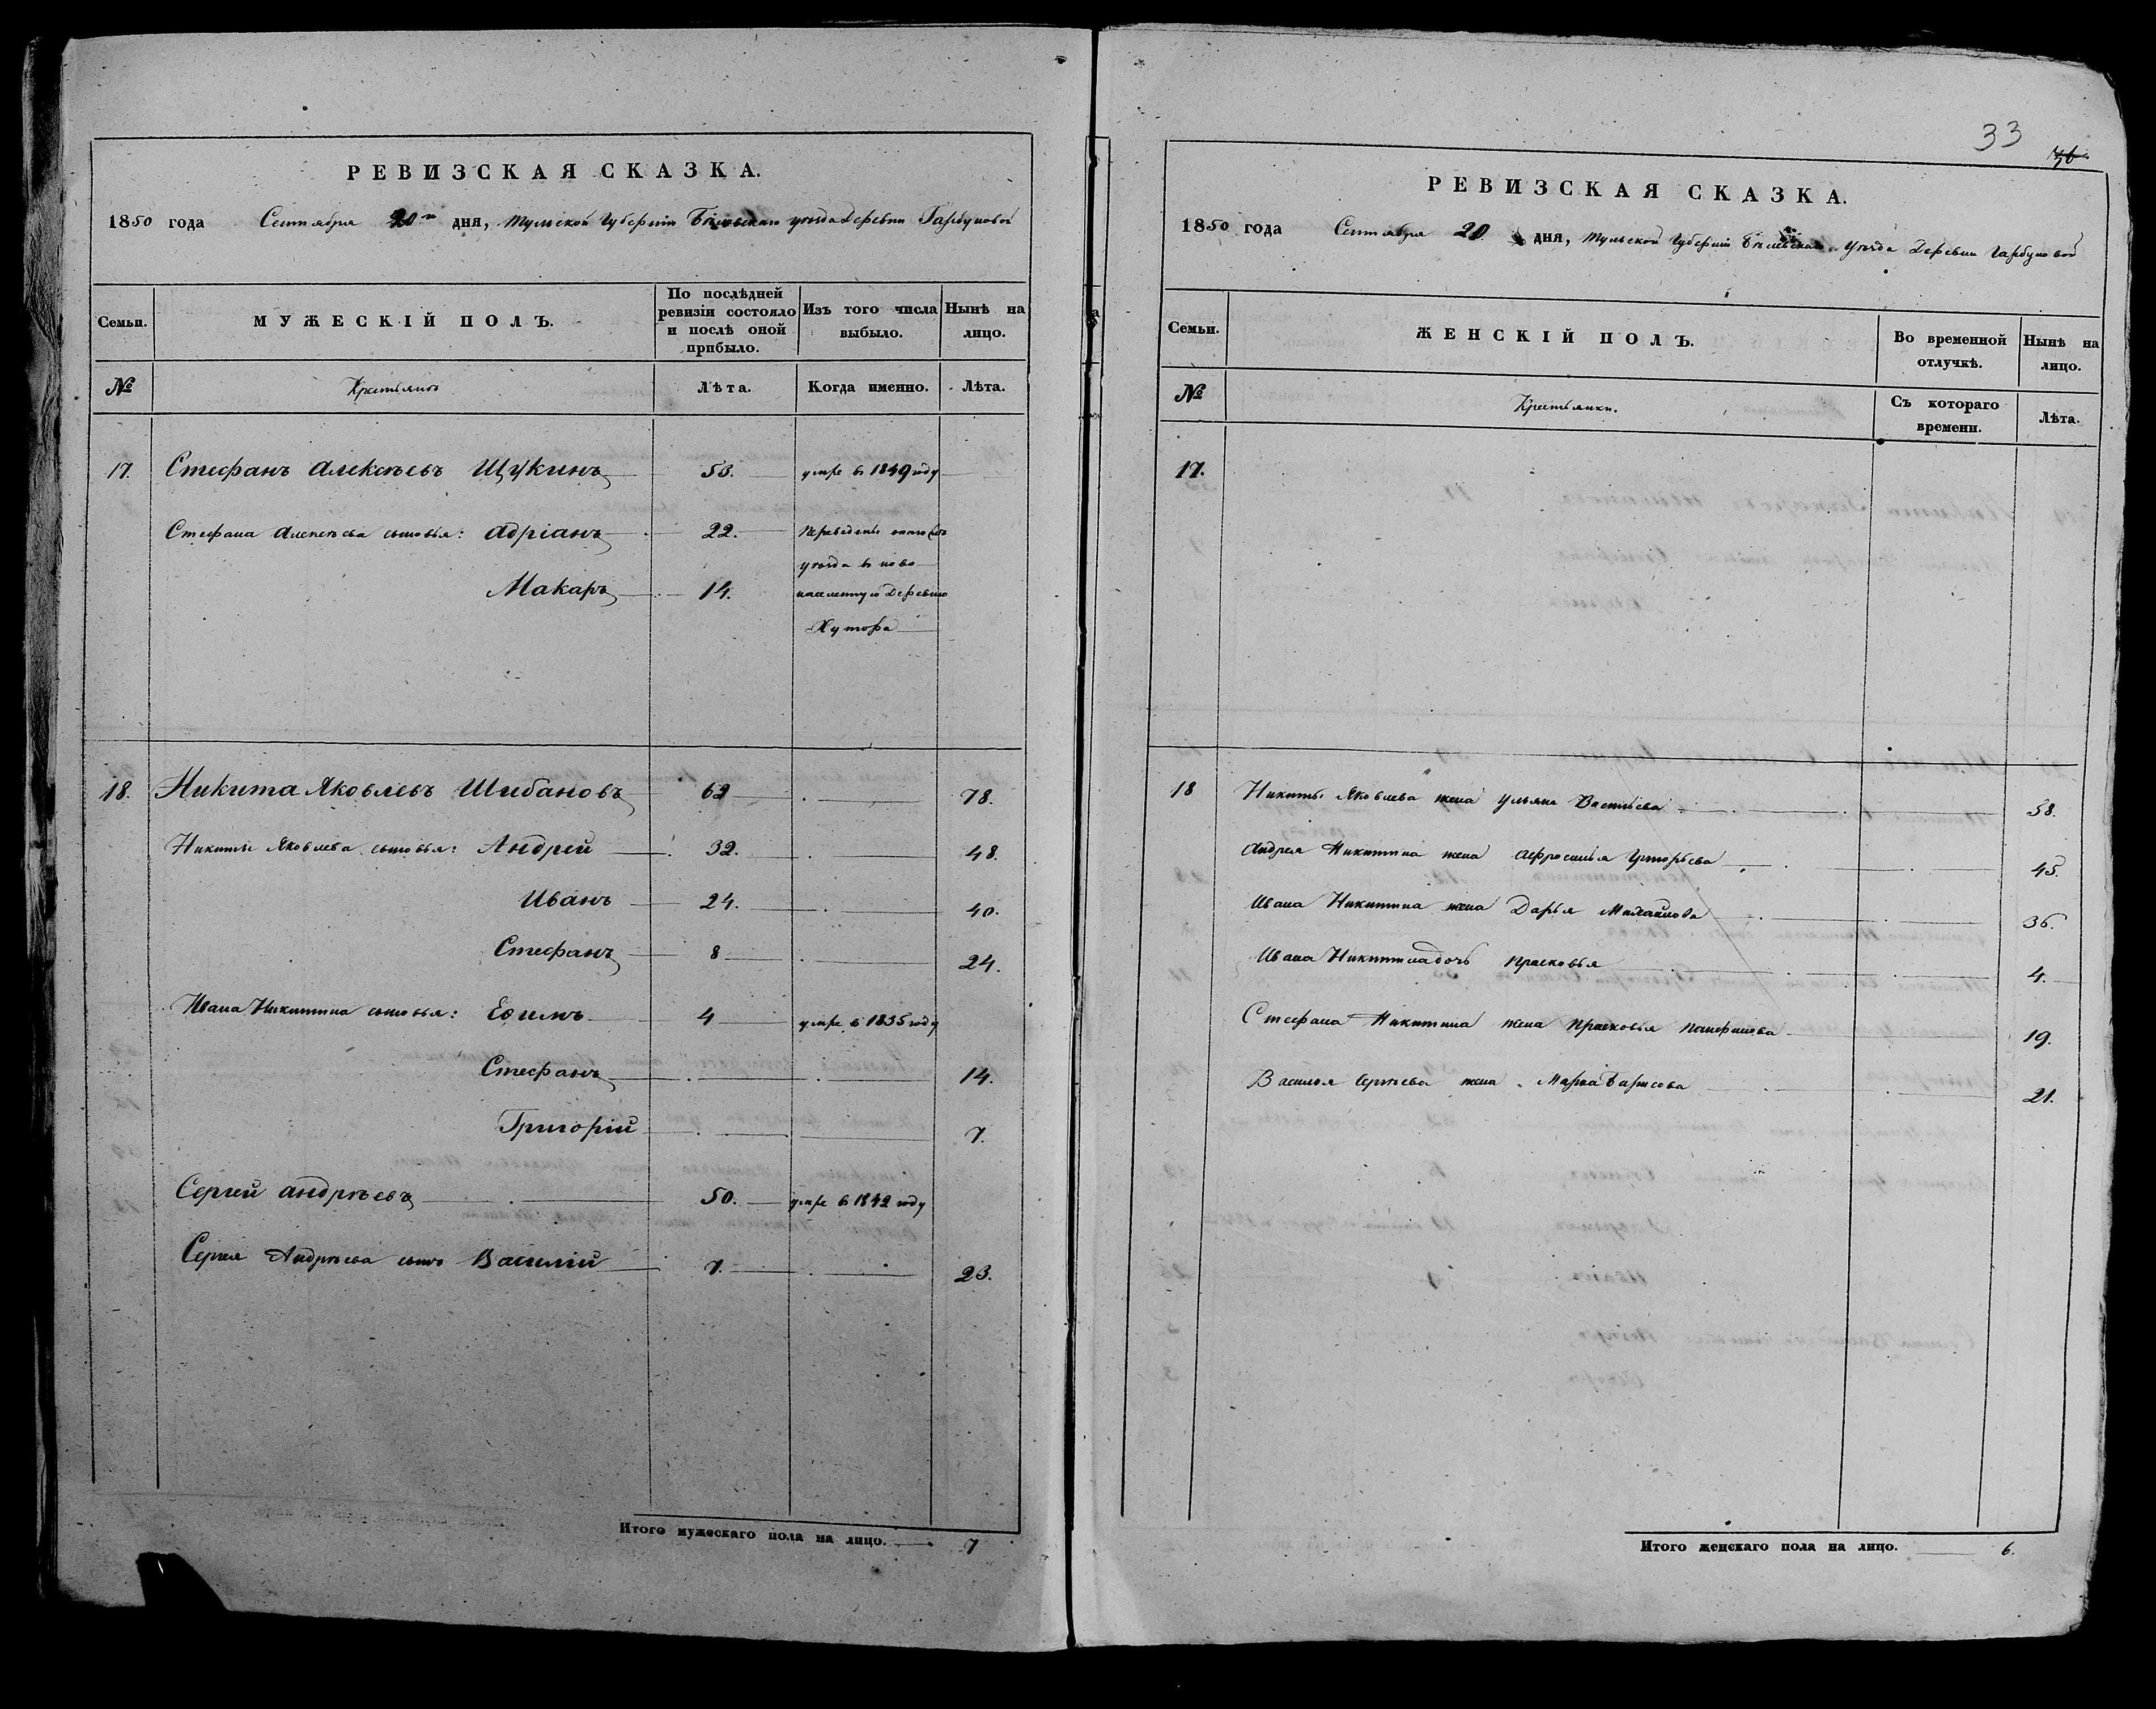 РЕВИЗСКАЯ СКАЗКА.
1850 года Сентября 20го дня, Тульской Губернии Бѣлевскаго уѣзда Деревни Гарбуновой
Семьи. МУЖЕСКІЙ ПОЛЪ. По послѣдней ревизіи состояло и послѣ оной прибыло. Изъ того числа выбыло. Нынѣ на лицо.
№ Крестьянъ Лѣта. Когда именно. Лѣта.
17. Стефанъ Алексѣевъ Щукинъ 53. умре в 1849 году
Стефана Алексѣева сыновья: Адріанъ 22. Переведены
уѣзда в ново
Макаръ 14. населенную Деревню
Хутора
18. Никита Яковлевъ Шибановъ 62 78.
Никиты Яковлева сыновья: Андрей 32. 48.
Иванъ 24. 40.
Стефанъ 8 24.
Ивана Никитина сыновья: Ефимъ 4 умре в 1835 году
Стефанъ 14.
Григорій 7.
Сергей Андрѣевъ 50. умре в 1842 году
Сергея Андрѣева сынъ Василій 7. 23.
Итого мужескаго пола на лицо. 7
33
36
РЕВИЗСКАЯ СКАЗКА.
1850 года Сентября 20 дня, Тульской Губерніи Бѣлевскаго Уѣзда Деревни Гарбуновой
Семьи. ЖЕНСКІЙ ПОЛЪ. Во временной отлучкѣ. Нынѣ на лицо.
№ Крестьянки. Съ котораго времени. Лѣта.
17.
18 Никиты Яковлева жена Ульяна 58.
Андрея Никитина жена Афросинья Григорьева 45.
Ивана Никитина жена Дарья Михайлова 36.
Ивана Никитина дочь Прасковья 4.
Стефана Никитина жена Прасковья 19.
Василья Сергѣева жена Марѳа Барисова 21.
Итого женскаго пола на лицо. 6.